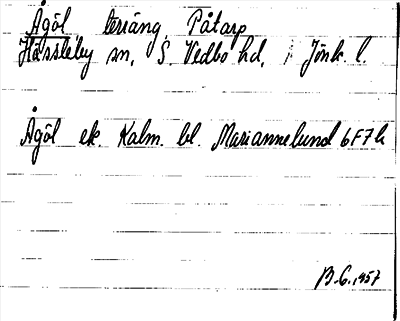 Ågöl, terräng, Påtarp
Hässleby sn, S. Vedbo hd, Jönk. l.
Ågöl ek. Kalm. bl. Mariannelund 6F7h
B.G. 1957